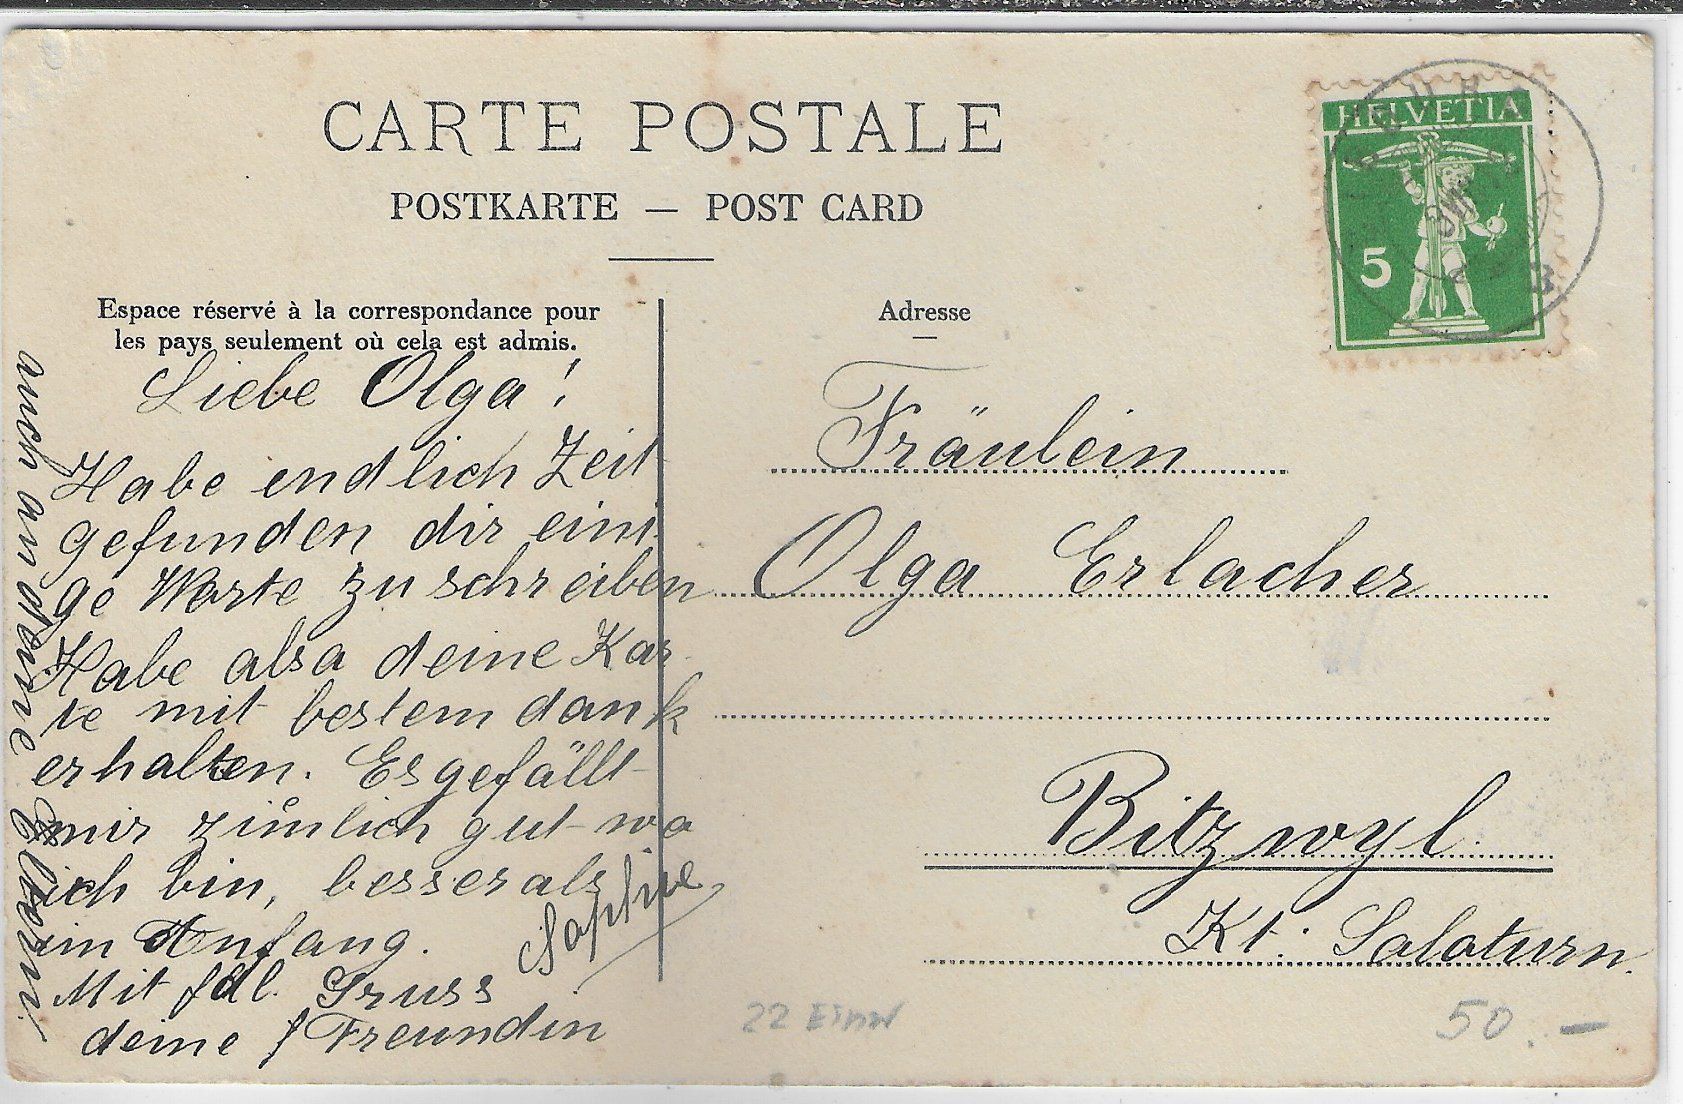 CARTE POSTALE
POSTKARTE — POST CARD
Espace réservé à la correspondance pour
les pays seulement où cela est admis.
Adresse
HELVETIA
5
Liebe Olga!
Habe endlich Zeit
gefunden dir eini-
ge Worte zu schreiben
Habe also deine Kar-
te mit bestem dank
erhalten. Es gefällt
mir zimlich gut wo
ich bin, besser als
im Anfang.
Mit fdl. Gruss
deine Freundin
Sophie
auch an deine Eltern!
Fräulein
Olga Erlacher
Bitzwyl.
Kt. Soloturn.
22 Einw
50.—